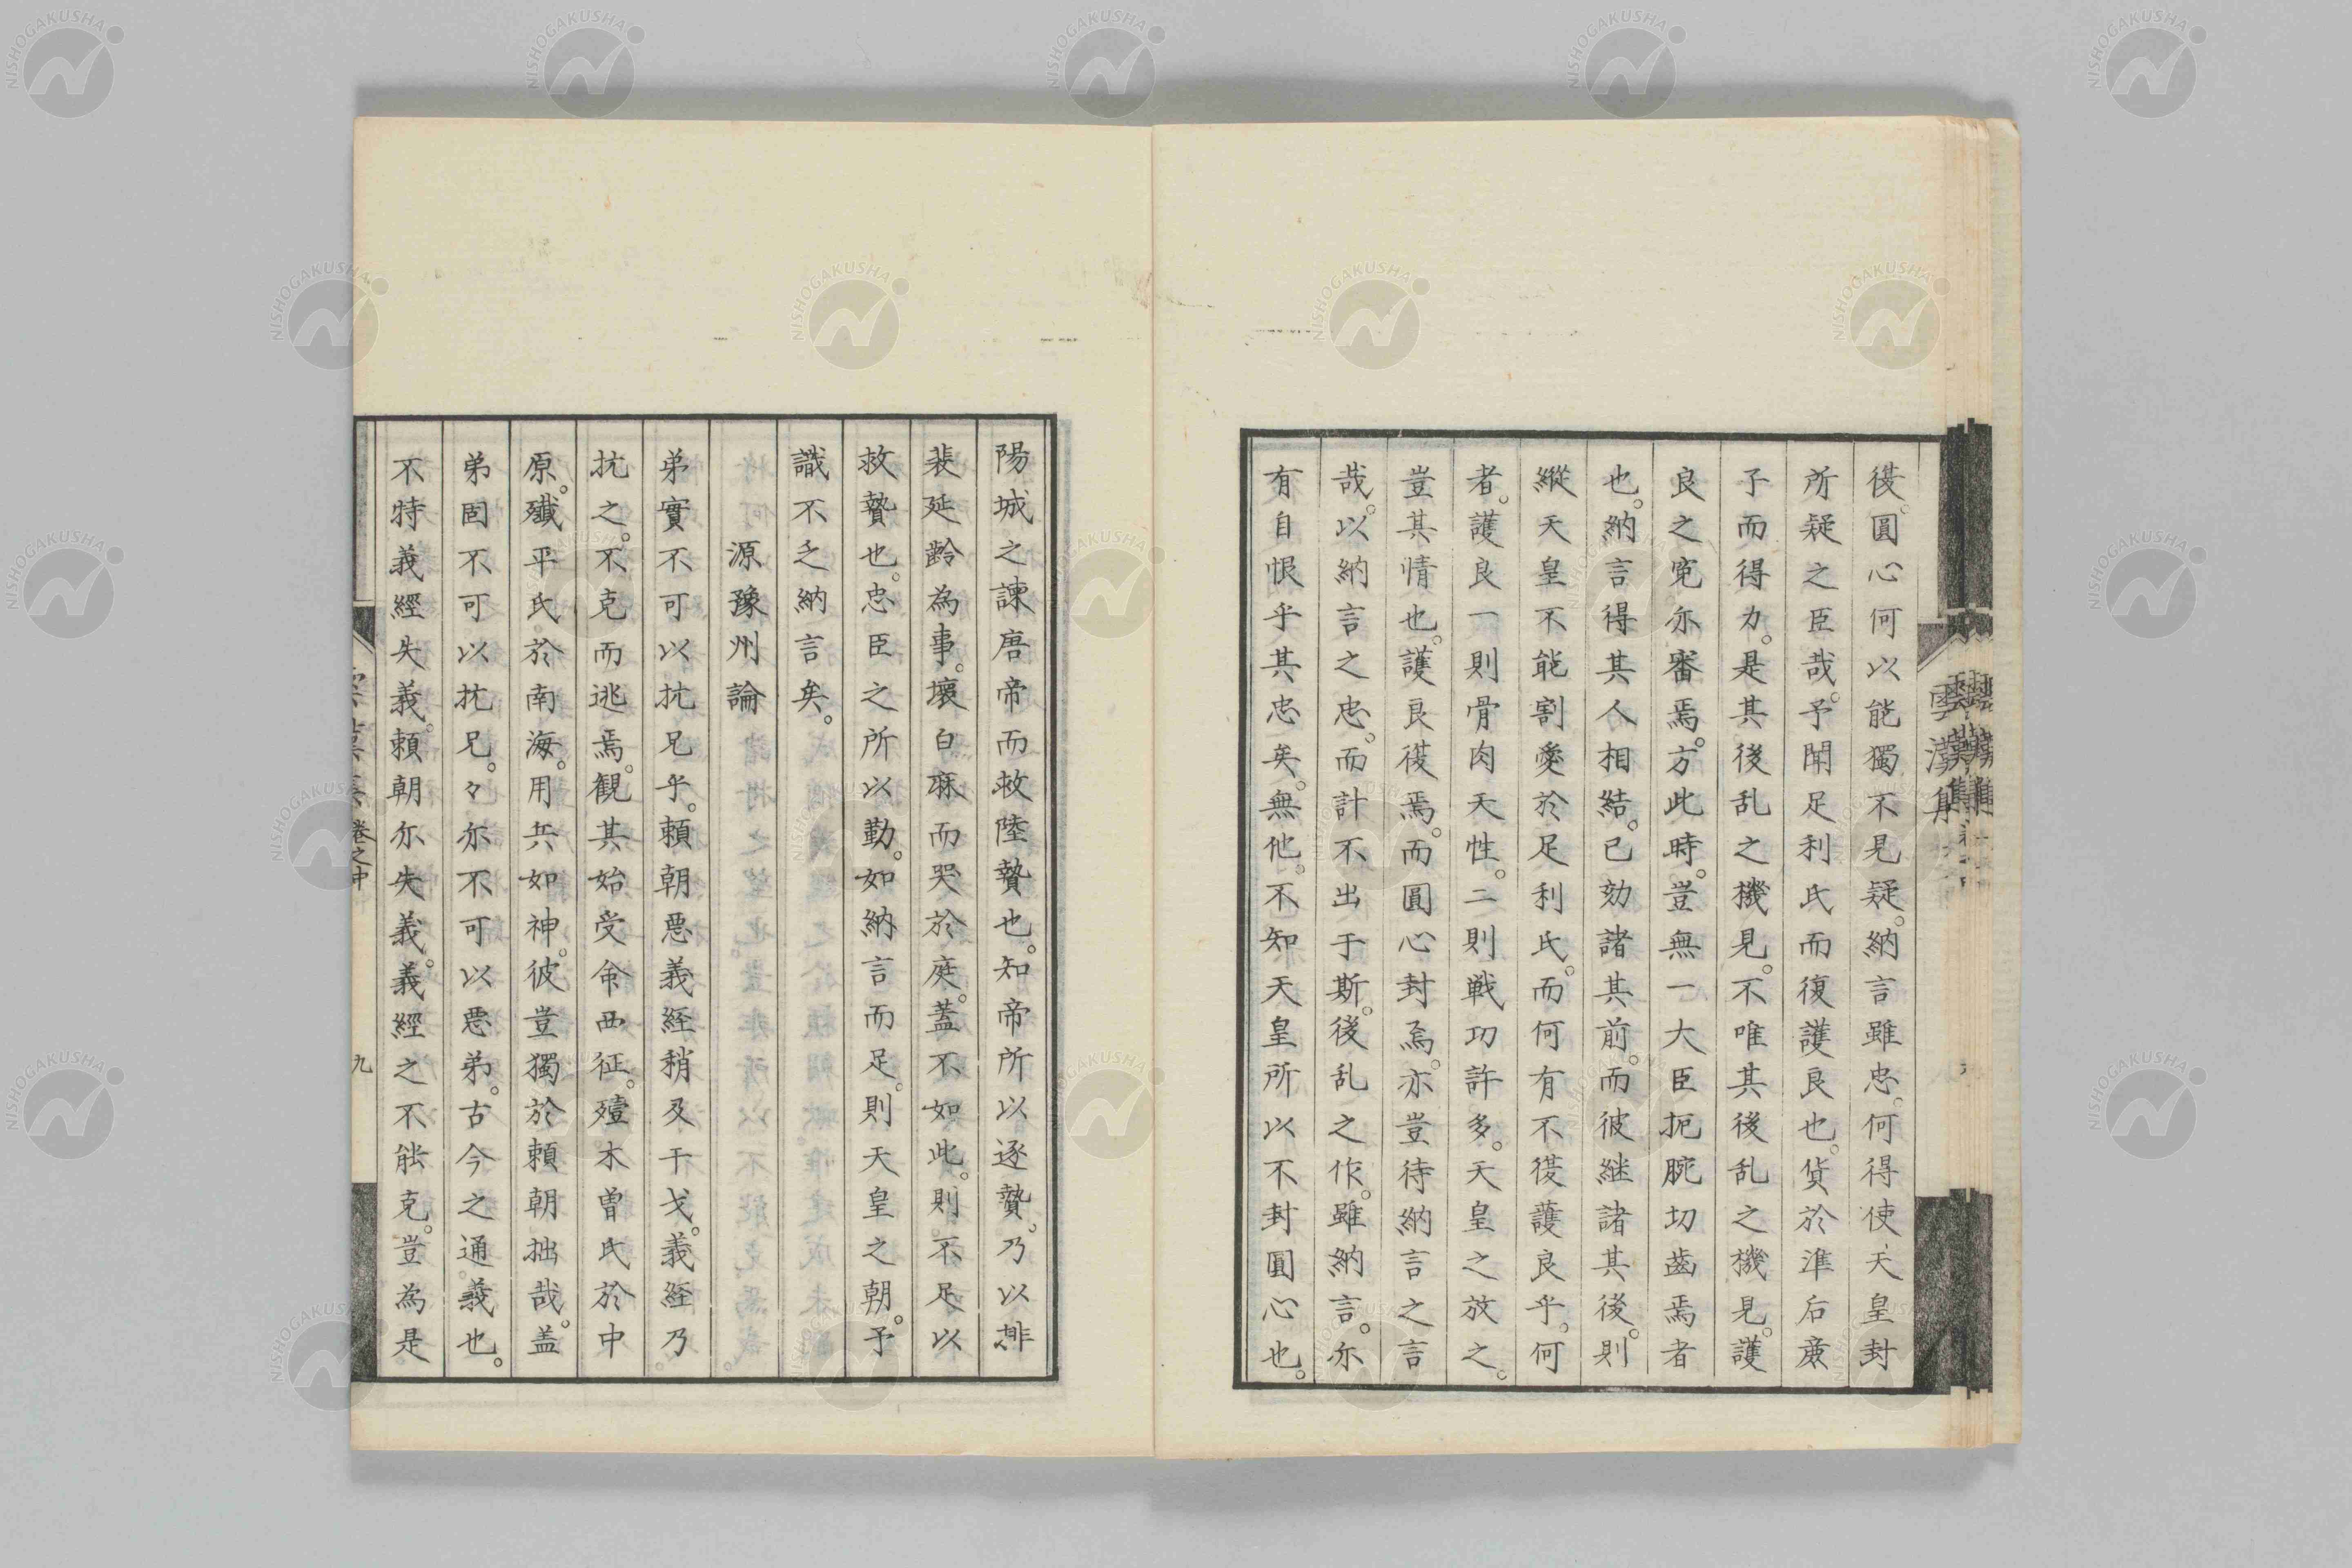 復。圓心何以能獨不見疑。納言雖忠。何得使天皇封
所疑之臣哉。予聞足利氏而復護良也。貨於準后廉
子而得力。是其後乱之機見。不唯其後乱之機見。護
良之寃亦審焉。方此時。豈無一大臣扼腕切齒焉者
也。納言得其人相結。已効諸其前。而彼継諸其後。則
縱天皇不能割愛於足利氏。而何有不復護良乎。何
者。護良一則骨肉天性。二則戦功許多。天皇之放之。
豈其情也。護良復焉。而圓心封焉。亦豈待納言之言
哉。以納言之忠。而計不出于斯。後乱之作。雖納言。亦
有自恨乎其忠矣。無他。不知天皇所以不封圓心也。
陽城之諫唐帝而救陸贄也。知帝所以逐贄。乃以排
裴延齡為事。壞白麻而哭於庭。蓋不如此。則不足以
救贄也。忠臣之所以勤。如納言而足。則天皇之朝。予
識不乏納言矣。
源豫州論
弟實不可以抗兄乎。頼朝悪義経稍及干戈。義経乃
抗之。不克而逃焉。観其始受命西征。殪木曾氏於中
原。殲平氏於南海。用兵如神。彼豈獨於頼朝拙哉。盖
弟固不可以抗兄。々亦不可以悪弟。古今之通義也。
不特義經失義。頼朝亦失義。義經之不能克。豈為是
雲漢集
卷之中
九
NISHOGAKUSHA